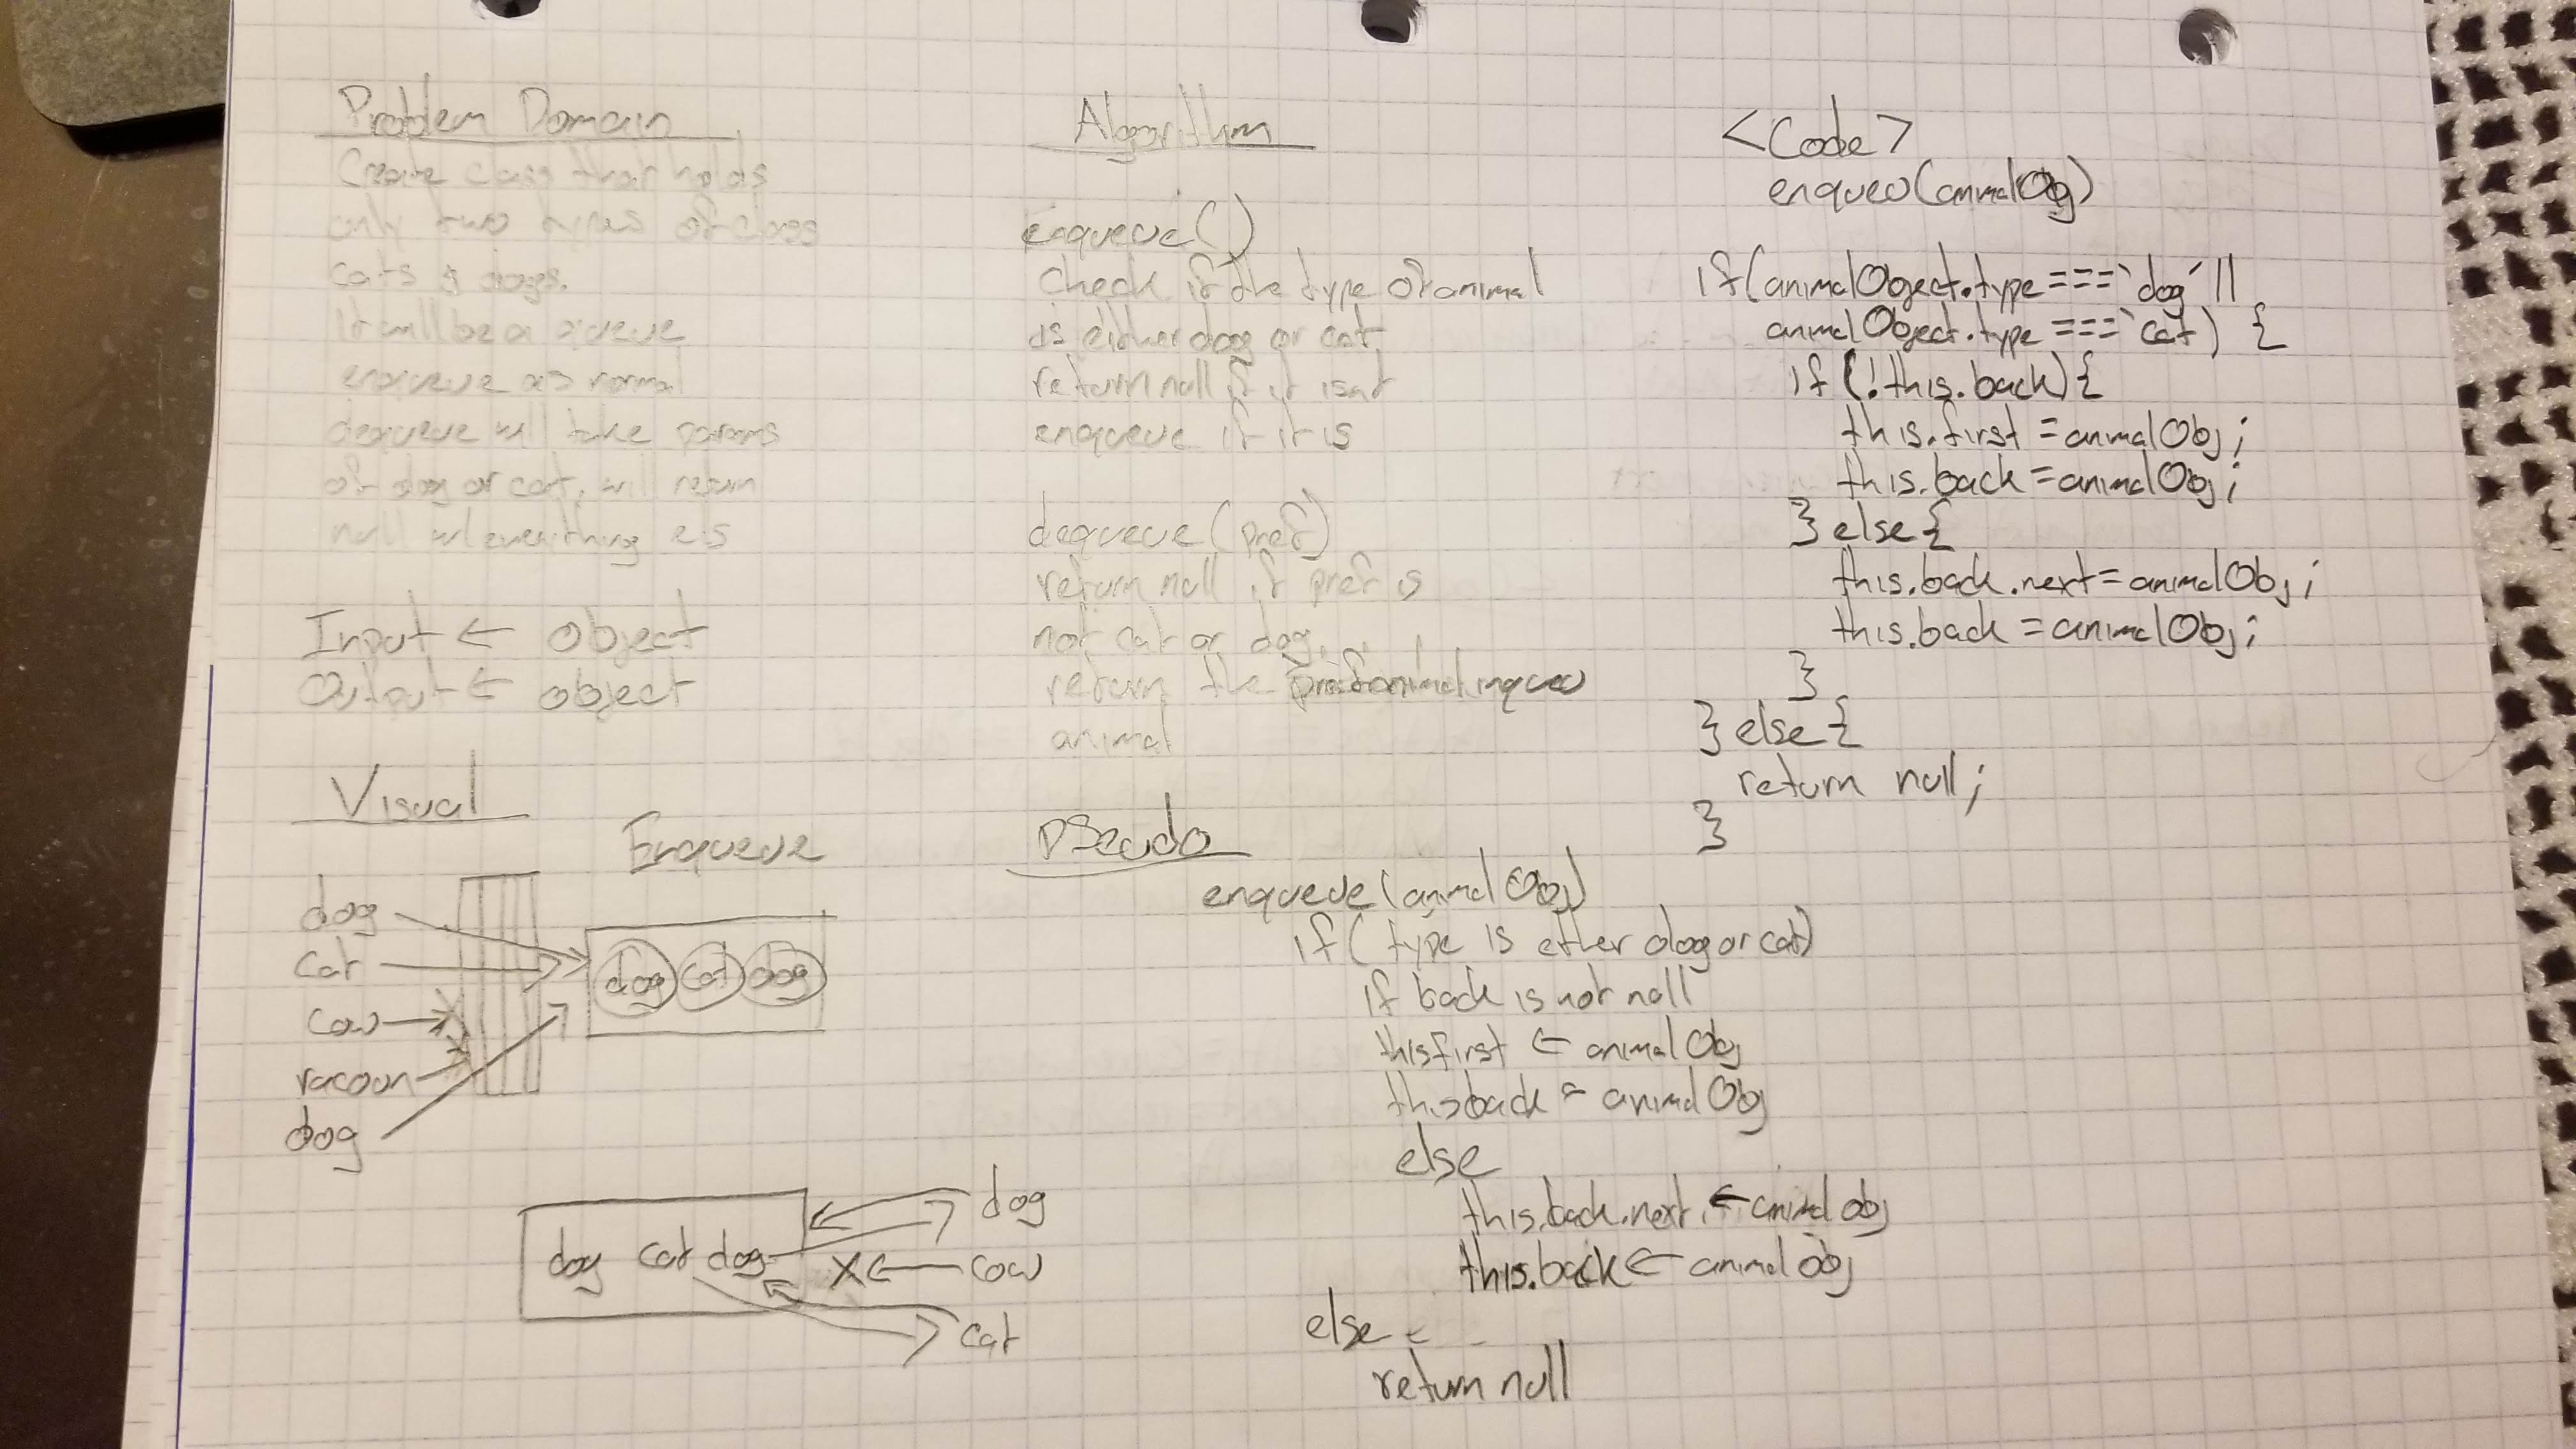 Problem Domain
Create class that holds
only two types of class
cats & dogs.
It will be a queue
enqueue as normal
dequeue will take params
of dog or cat, will return
null w/ everything els
Input ← object
Output ← object
Visual
Enqueue
dog
cat
cow
racoon
dog
dog cat dog
dog cat dog
dog
X ← cow
cat
Algorithm
enqueue()
check if the type of animal
is either dog or cat,
return null if it isnt
enqueue if it is
dequeue(pref)
return null if pref is
not cat or dog.
return the pref animal inqueu
animal
Pseudo
enqueue(animalObj)
if( type is ether dog or cat)
if back is not null
thisfirst ← animalObj
thisback = animalObj
else
this.back.next. ← animal obj
this.back ← animal obj
else
return null
<Code>
enqueu(animalObj)
if(animalObject.type === `dog´ ||
animalObject.type === `cat) {
if (!this.back){
this.first = animalObj;
this.back = animalObj;
} else{
this.back.next = animalObj;
this.back = animalObj;
}
} else{
return null;
}